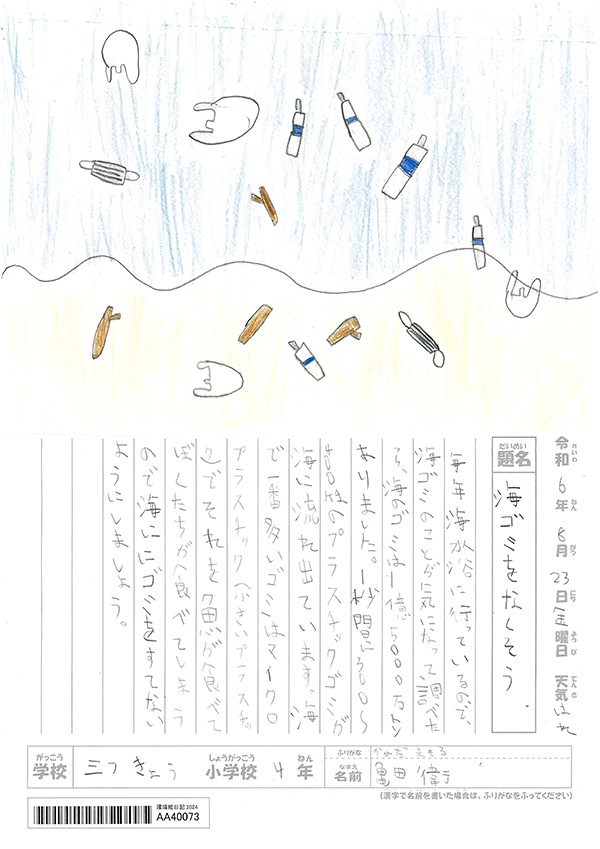 令和6年8月23日金曜日 天気はれ
れいわ ねん がつ にち ようび てんき
だいめい
題名 海ゴミをなくそう
毎年海水浴に行っているので、
海ゴミのことが気になって調べた
ら、海のゴミは1億5000万トン
ありました。1秒間に300〜
400kgのプラスチックゴミが
海に流れ出ています。海
で一番多いゴミはマイクロ
プラスチック(小さいプラスチッ
ク)でそれを魚が食べて
ぼくたちが食べてしまう
ので海ににゴミをすてない
ようにしましょう。
がっこう しょうがっこう ねん ふりがな かめだ
学校 三つきょう 小学校 4年 なまえ 名前 亀田
(漢字で名前を書いた場合は、ふりがなをふってください)
環境絵日記2024
AA40073